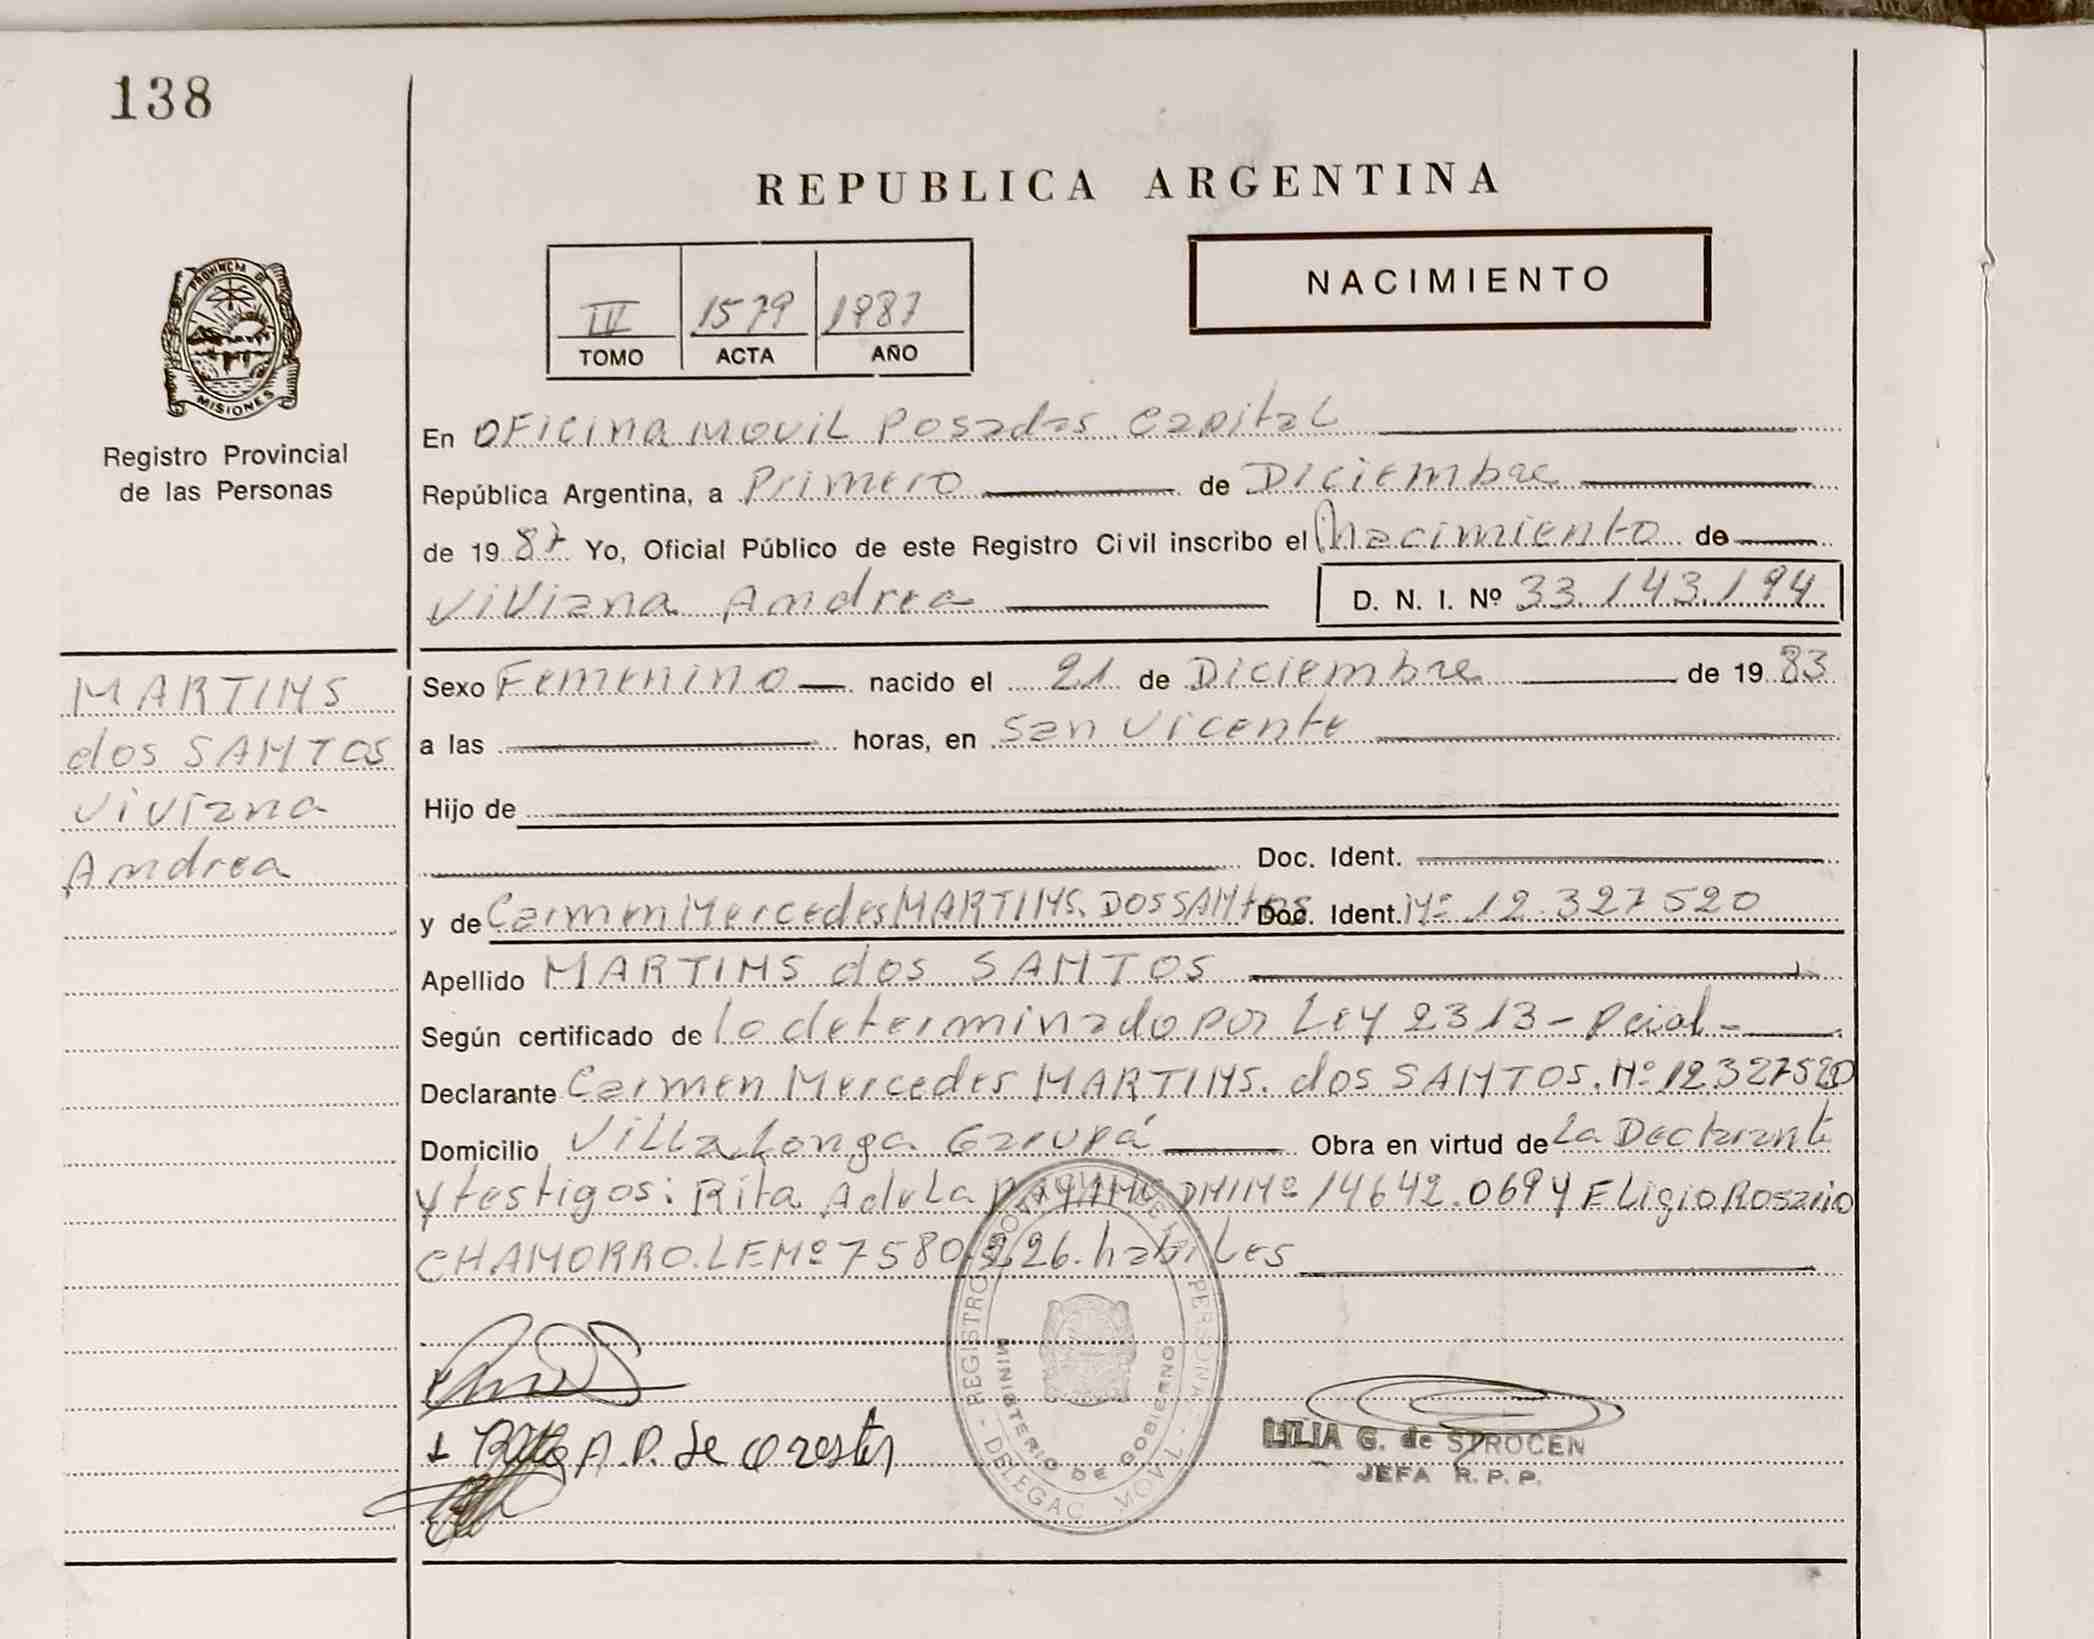 138
REPUBLICA ARGENTINA
NACIMIENTO
IV 1579 1987
TOMO ACTA AÑO
PROVINCIA DE
MISIONES
Registro Provincial
de las Personas
En OFicina Movil Posadas Capital
República Argentina, a Primero de Diciembre
de 19 87 Yo, Oficial Público de este Registro Civil inscribo el Nacimiento de
Viviana Andrea D. N. I. Nº 33.143.194
MARTINS
dos SANTOS
Viviana
Andrea
Sexo Femenino nacido el 21 de Diciembre de 19 83
a las horas, en San Vicente
Hijo de
Doc. Ident.
y de Carmen Mercedes MARTINS. DOS SANtos Doc. Ident. Nº 12.327520
Apellido MARTINS dos SANTOS
Según certificado de lo determinado por Ley 2313 - Pcial -
Declarante Carmen Mercedes MARTINS. dos SANTOS. Nº 12.327520
Domicilio Villa Longa Garupá Obra en virtud de La Declarante
y testigos: Rita Adela DNI Nº 14642.069 y Eligio Rosario
CHAMORRO. LE Nº 7580.226. habiles
A. P. de Orester
REGISTRO PROVINCIAL DE LAS PERSONAS - DELEGAC. MOVIL -
MINISTERIO DE GOBIERNO
LILIA G. de SPROCEN
JEFA R. P. P.